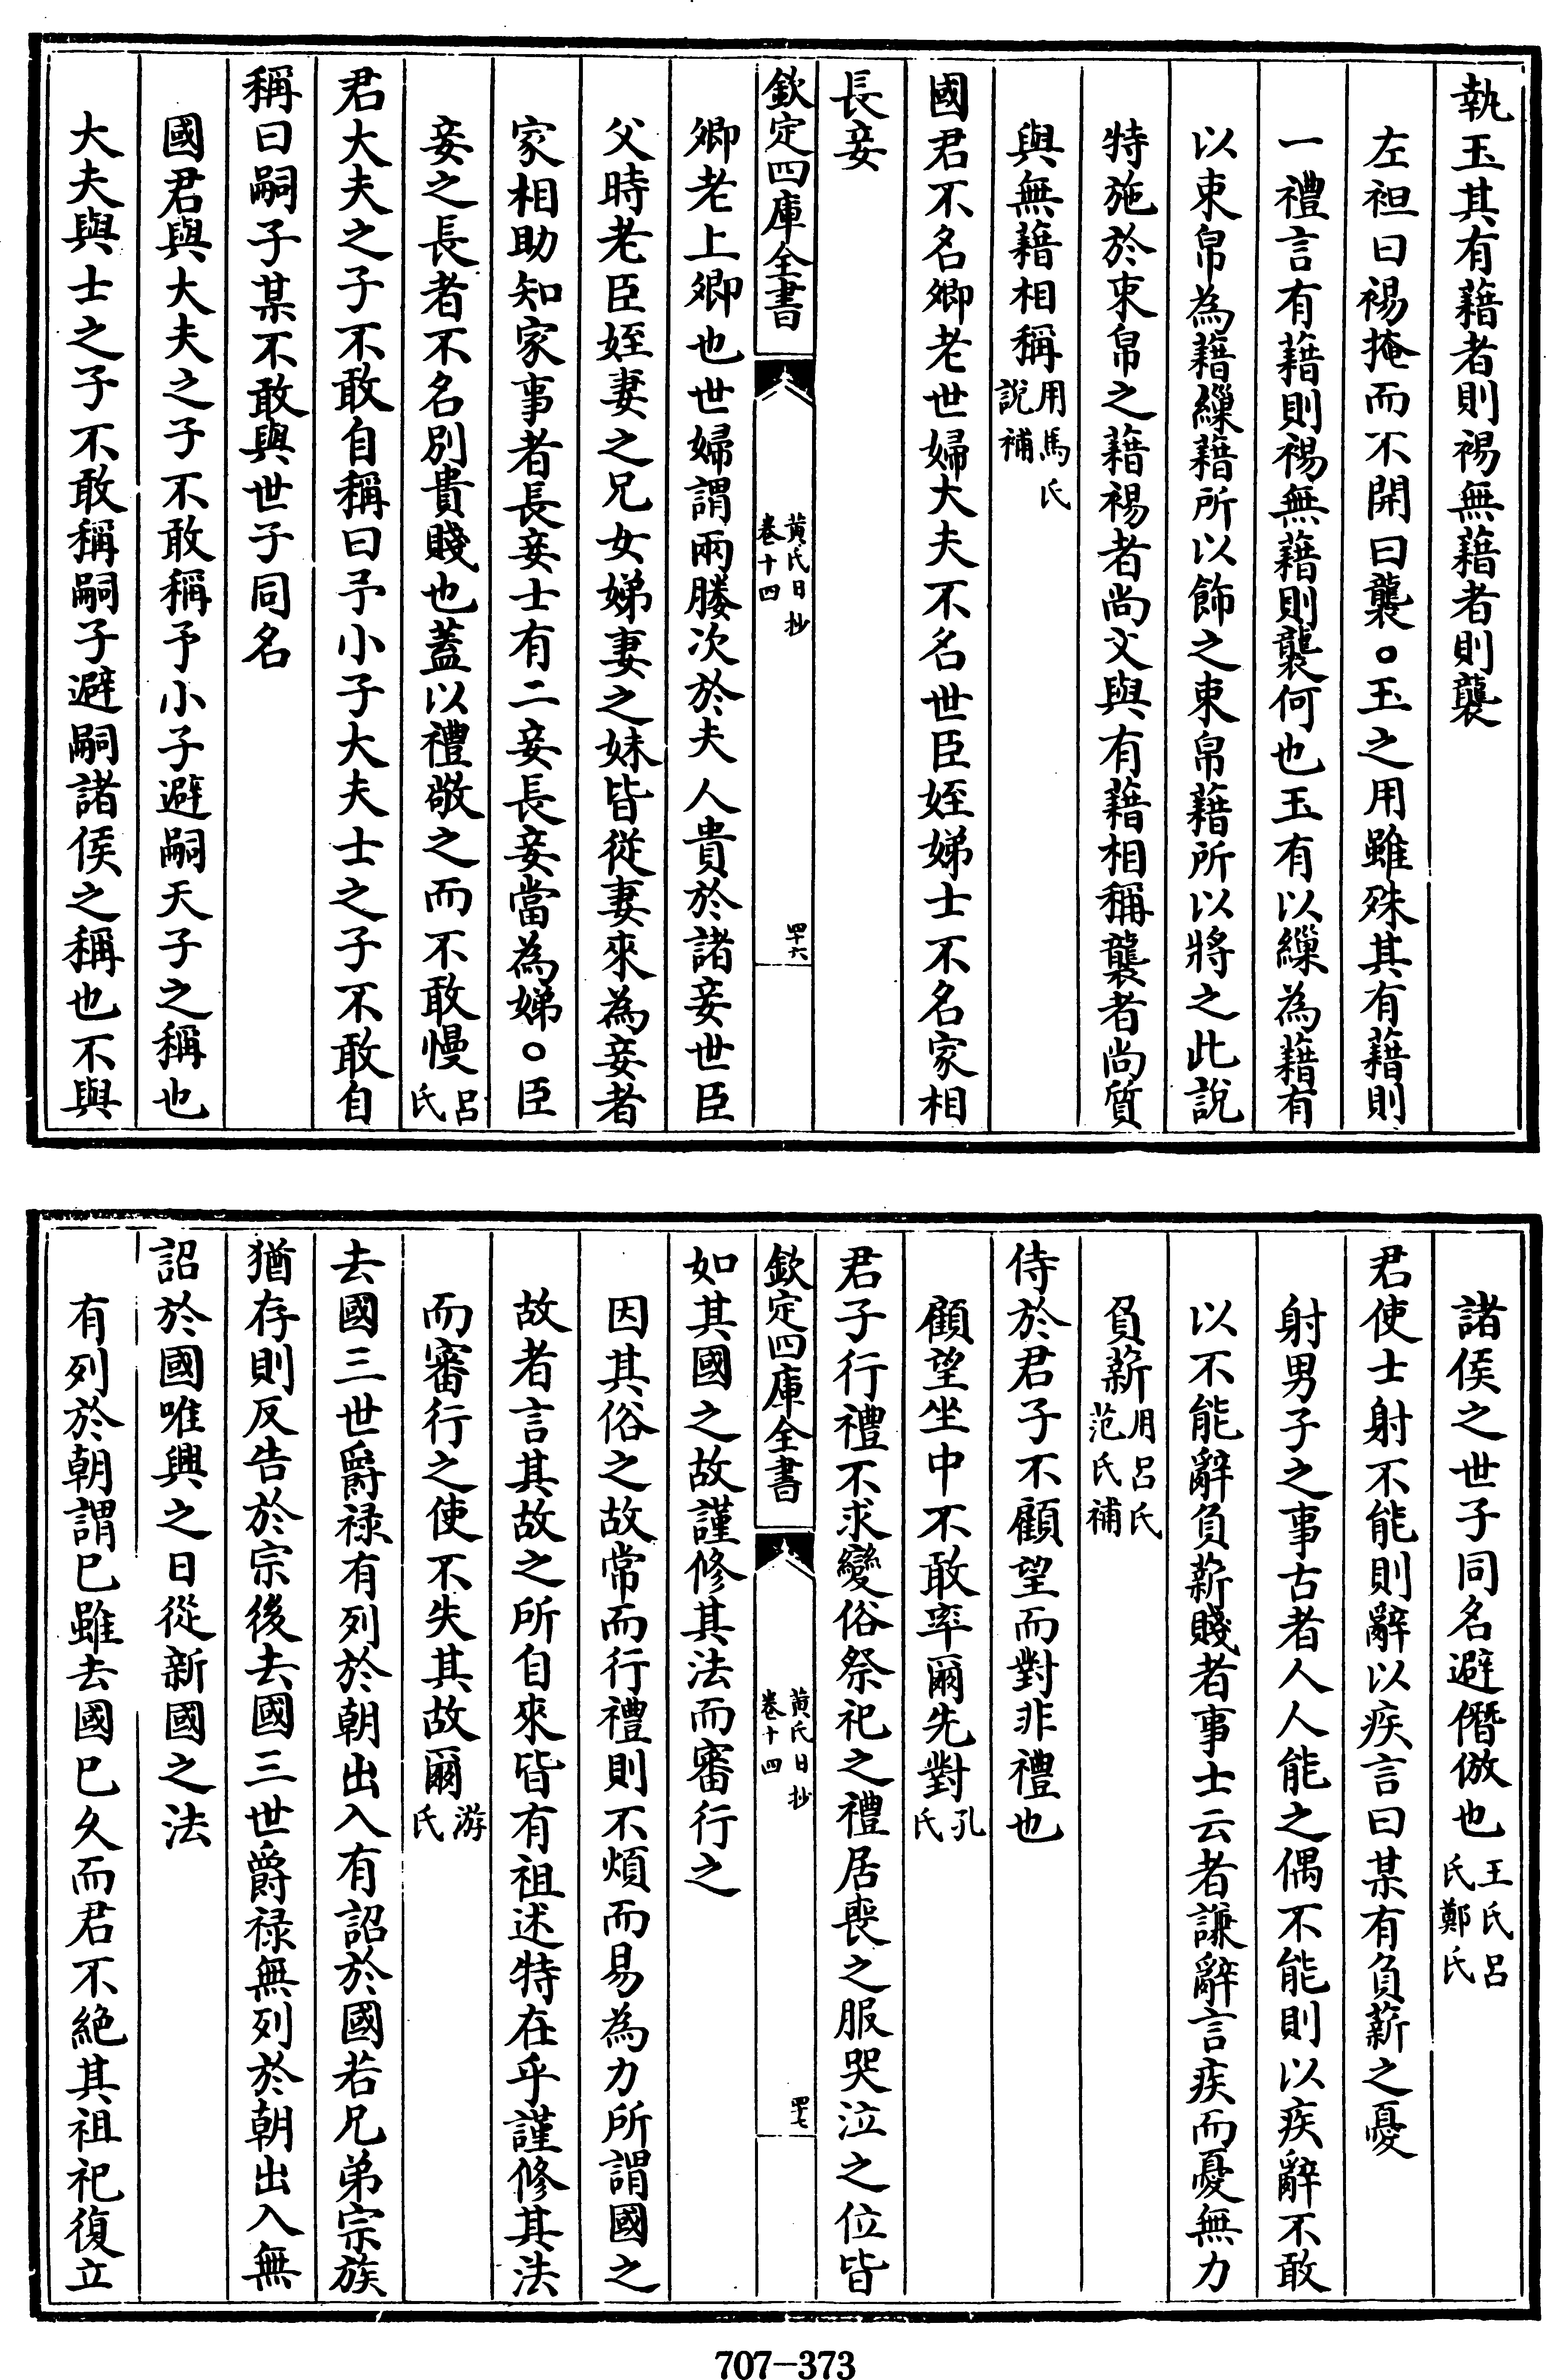 執玉其有藉者則裼無藉者則襲
左袒曰裼掩而不開曰襲○玉之用雖殊其有藉則
一禮言有藉則裼無藉則襲何也玉有以繅為藉有
以束帛為藉繅藉所以飾之束帛藉所以將之此說
特施於束帛之藉裼者尚文與有藉相稱襲者尚質
與無藉相稱用馬氏說補
國君不名卿老世婦大夫不名世臣姪娣士不名家相
長妾
欽定四庫全書
黃氏日抄
卷十四
四十六
卿老上卿也世婦謂兩媵次於夫人貴於諸妾世臣
父時老臣姪妻之兄女娣妻之妹皆從妻來為妾者
家相助知家事者長妾士有二妾長妾當為娣○臣
妾之長者不名別貴賤也蓋以禮敬之而不敢慢呂氏
君大夫之子不敢自稱曰予小子大夫士之子不敢自
稱曰嗣子某不敢與世子同名
國君與大夫之子不敢稱予小子避嗣天子之稱也
大夫與士之子不敢稱嗣子避嗣諸侯之稱也不與
諸侯之世子同名避僭倣也王氏呂氏鄭氏
君使士射不能則辭以疾言曰某有負薪之憂
射男子之事古者人人能之偶不能則以疾辭不敢
以不能辭負薪賤者事士云者謙辭言疾而憂無力
負薪用呂氏范氏補
侍於君子不顧望而對非禮也
顧望坐中不敢率爾先對孔氏
君子行禮不求變俗祭祀之禮居喪之服哭泣之位皆
欽定四庫全書
黃氏日抄
卷十四
四十七
如其國之故謹修其法而審行之
因其俗之故常而行禮則不煩而易為力所謂國之
故者言其故之所自來皆有祖述特在乎謹修其法
而審行之使不失其故爾游氏
去國三世爵祿有列於朝出入有詔於國若兄弟宗族
猶存則反告於宗後去國三世爵祿無列於朝出入無
詔於國唯興之日從新國之法
有列於朝謂已雖去國已久而君不絕其祖祀復立
707—373